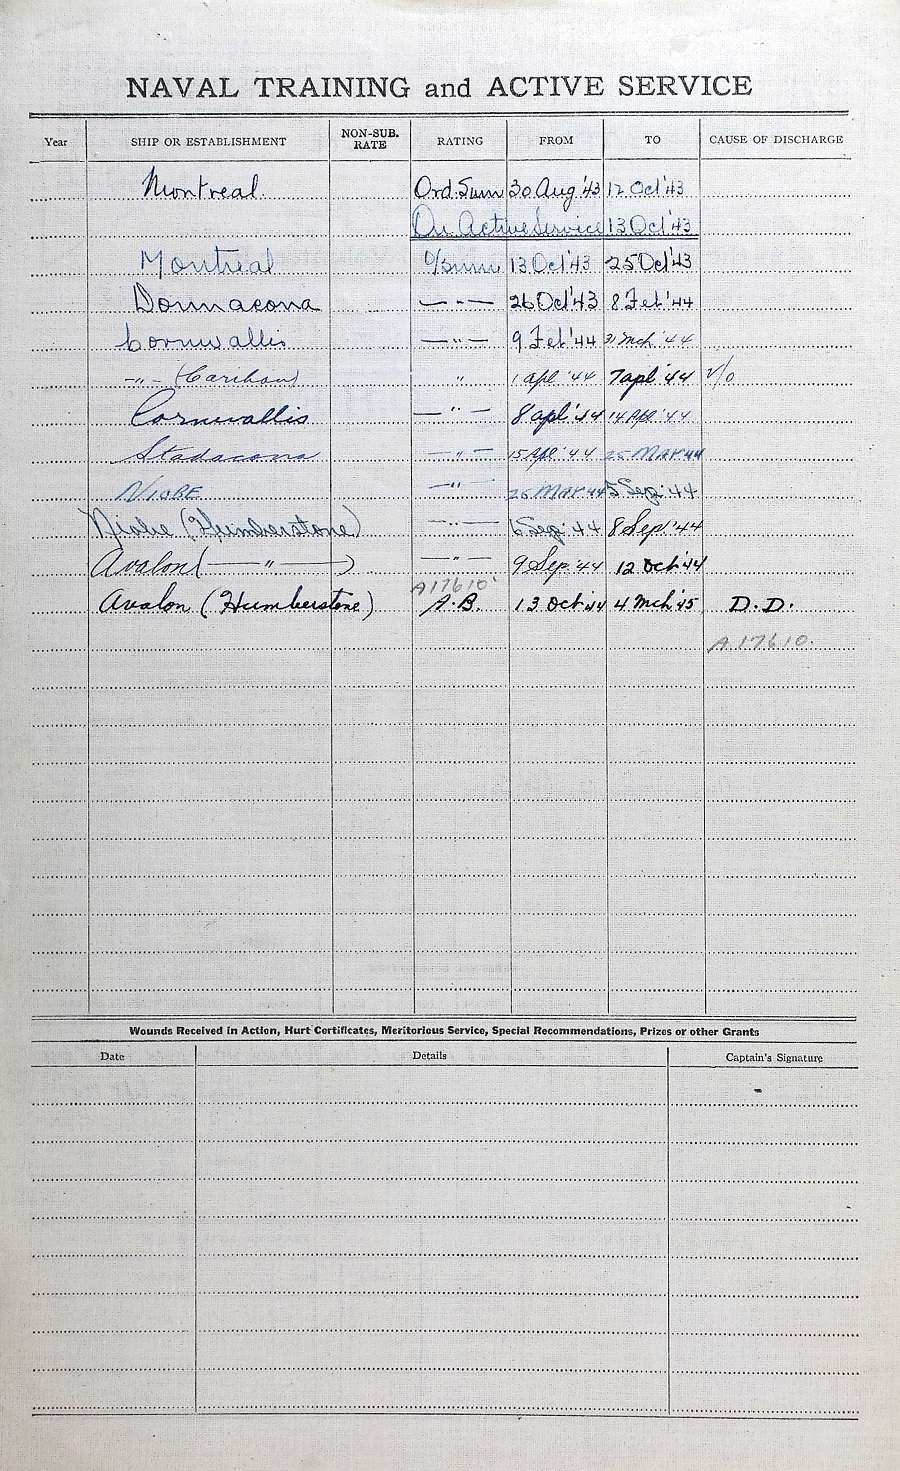 NAVAL TRAINING and ACTIVE SERVICE
Year SHIP OR ESTABLISHMENT NON-SUB. RATE RATING FROM TO CAUSE OF DISCHARGE
Montreal. Ord. Smn 30 Aug '43 12 Oct '43
On Active Service 13 Oct '43
Montreal O/Smn 13 Oct '43 25 Oct '43
Donnacona —"— 26 Oct '43 8 Feb '44
Cornwallis —"— 9 Feb '44 31 Mch '44
-"- (Caribou) " 1 Apl '44 7 Apl '44
Cornwallis —"— 8 Apl '44 14 Apl '44
Stadacona —"— 15 Apl '44 25 MAY 44
NIOBE —"— 26 MAY 44 5 Sep. '44
Niobe (Humberstone) —"— 6 Sep. '44 8 Sept. '44
Avalon (—"—) —"— 9 Sep. '44 12 Oct '44
A17610
Avalon (Humberstone) A.B. 13 Oct '44 4 Mch '45 D.D.
A.17610.
Wounds Received in Action, Hurt Certificates, Meritorious Service, Special Recommendations, Prizes or other Grants
Date Details Captain's Signature